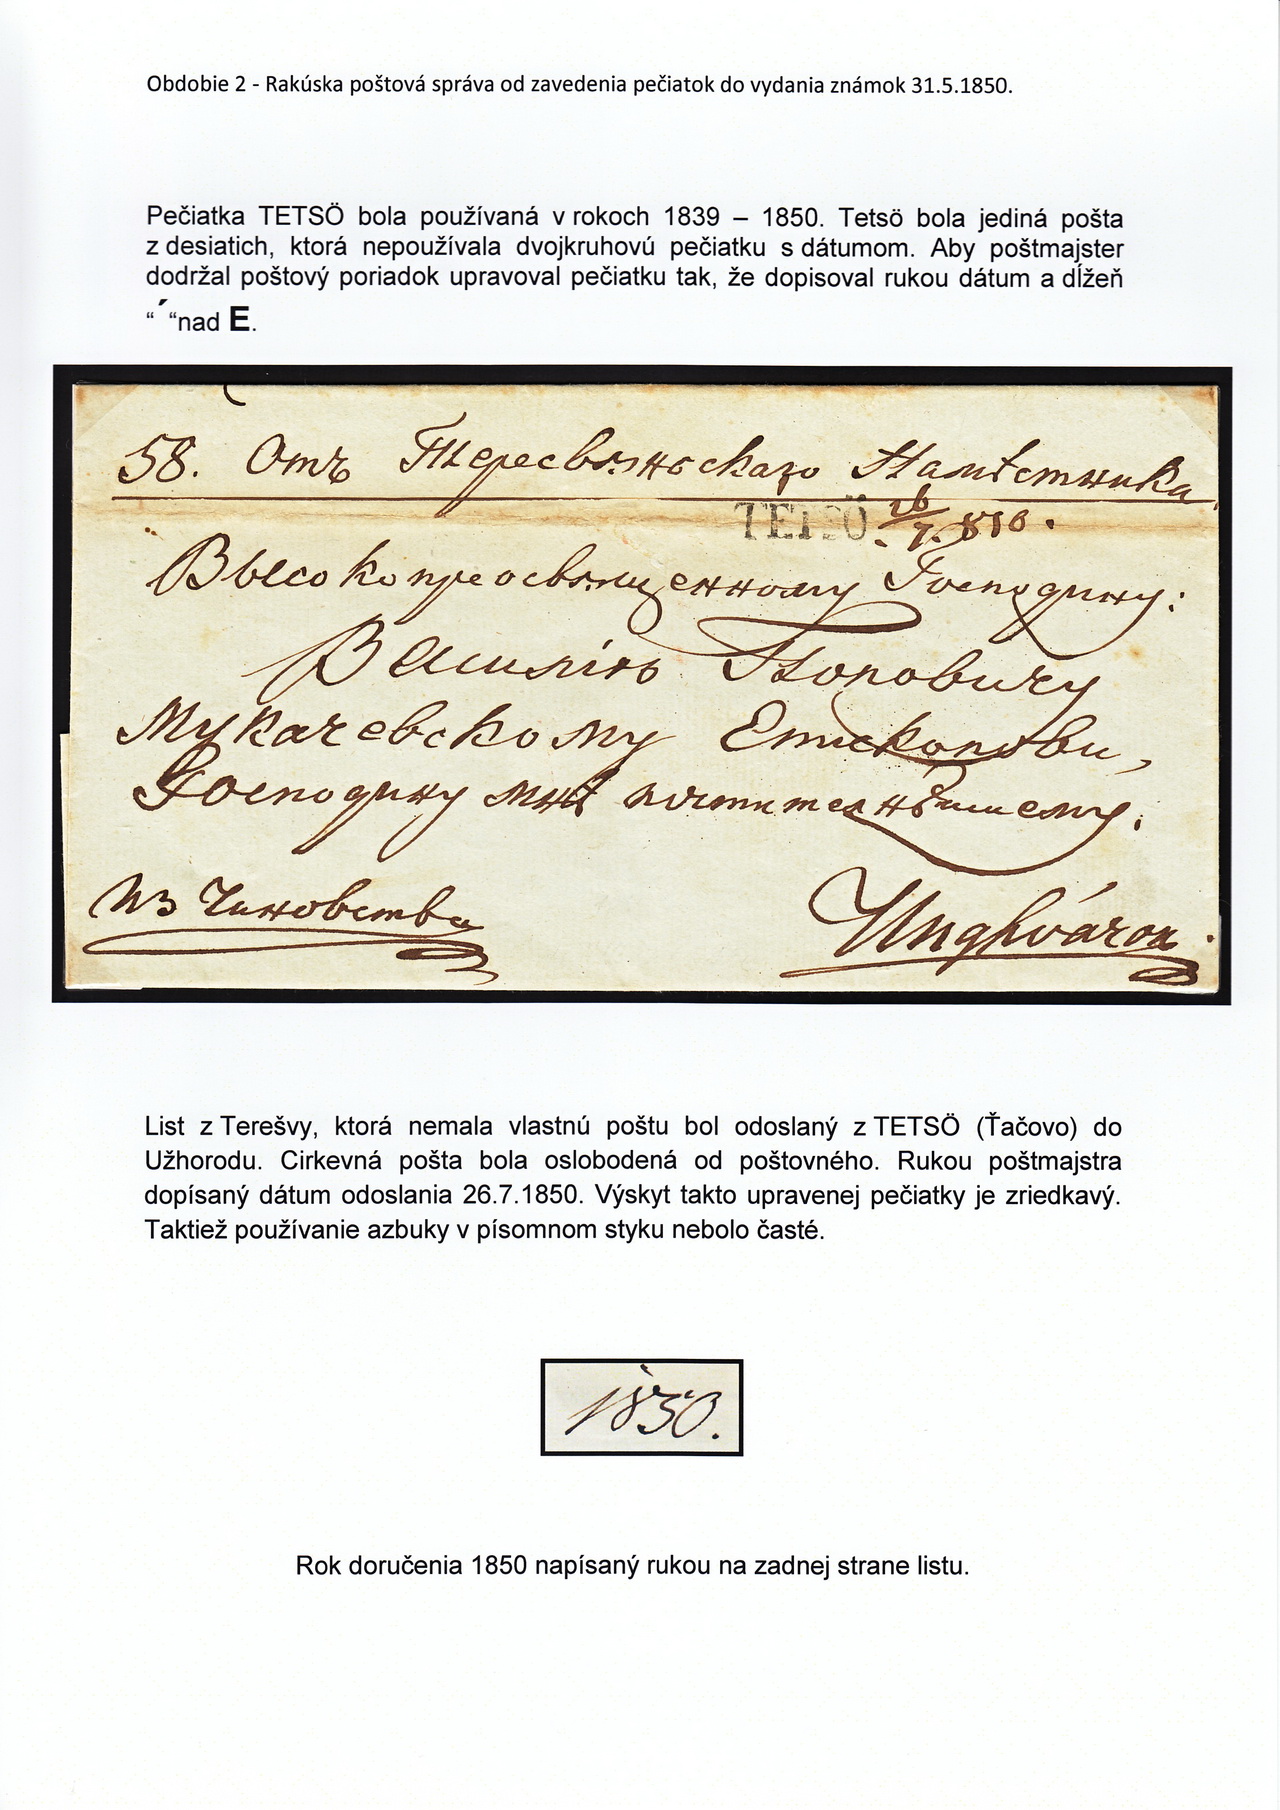 Obdobie 2 - Rakúska poštová správa od zavedenia pečiatok do vydania známok 31.5.1850.
Pečiatka TETSÖ bola používaná v rokoch 1839 – 1850. Tetsö bola jediná pošta
z desiatich, ktorá nepoužívala dvojkruhovú pečiatku s dátumom. Aby poštmajster
dodržal poštový poriadok upravoval pečiatku tak, že dopisoval rukou dátum a dĺžeň
“ ´ “nad E.
58. Отъ Тересвянскаго Намѣстника
TETSÖ 26/7. 850.
Высокопреосвященному Господину:
Василію Поповичу
Мукачевскому Епископови,
Господину мнѣ почтителнѣйшему.
Из Чиновства
Unghváron.
List z Terešvy, ktorá nemala vlastnú poštu bol odoslaný z TETSÖ (Ťačovo) do
Užhorodu. Cirkevná pošta bola oslobodená od poštovného. Rukou poštmajstra
dopísaný dátum odoslania 26.7.1850. Výskyt takto upravenej pečiatky je zriedkavý.
Taktiež používanie azbuky v písomnom styku nebolo časté.
1850.
Rok doručenia 1850 napísaný rukou na zadnej strane listu.